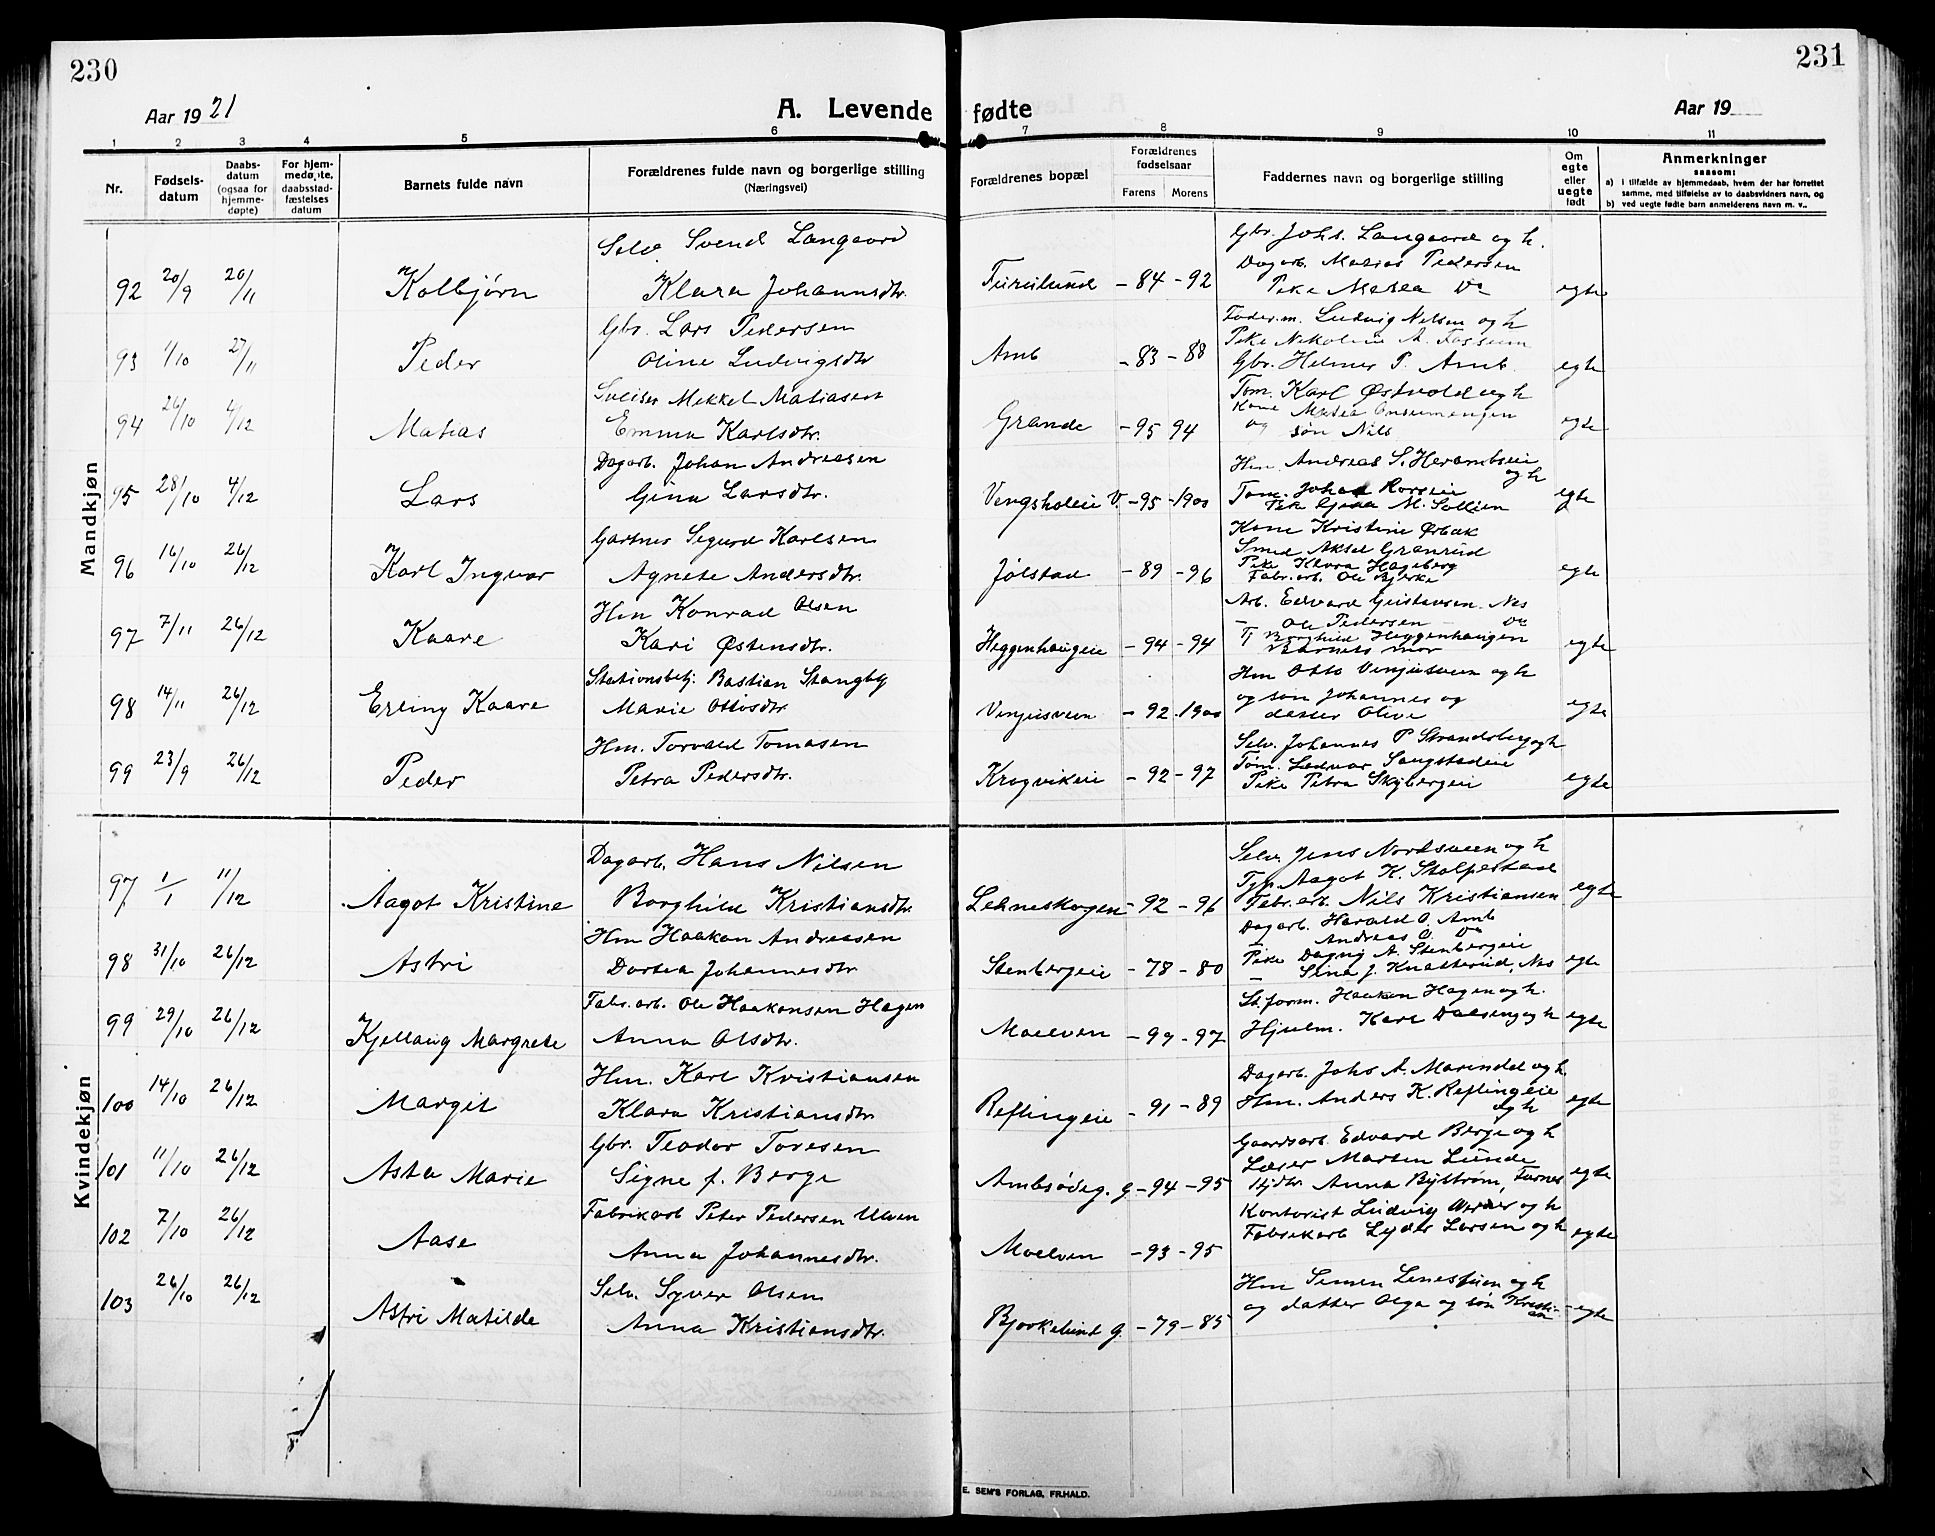 230
231
Aar 1921
A. Levende fødte
Aar 19
1 2 3 4 5 6 7 8 9 10 11
Nr.
Fødsels-
datum
Daabs-
datum
(ogsaa for
hjemme-
døpte)
For hjem-
medøpte,
daabsstad-
fæstelses
datum
Barnets fulde navn
Forældrenes fulde navn og borgerlige stilling
(Næringsvei)
Forældrenes bopæl
Forældrenes
fødselsaar
Farens Morens
Faddernes navn og borgerlige stilling
Om
egte
eller
uegte
født
Anmerkninger
saasom:
a) I tilfælde av hjemmedaab, hvem der har forrettet
samme, med tilføielse av to daabsvidners navn, og
b) ved uegte fødte barn anmelderens navn m. v..
Mandkjøn
Selv. Svend Langaard
92 20/9 20/11 Kolbjørn Klara Johannsdtr. Furulund - 84 - 92 egte
Gbr. Johs. Langaard og h.
Dagarb. Matias Pedersen
Pike Marea Do
Gbr. Lars Pedersen
93 1/10 27/11 Peder Oline Ludvigsdtr Amb - 83 - 88 egte
Foder.m. Ludvig Nilsen og h
Pike Nikoline A. Fossum
Gbr. Helmer P. Amb.
Sveiser Mekkel Matiasen
94 26/10 4/12 Matias Emma Karlsdtr. Grande - 95 94 egte
Tøm. Karl Østvold og h
Kone Marea
og søn Nils
Dagarb. Johan Andreasen
95 28/10 4/12 Lars Gina Larsdtr. Vengsholeie V. - 95 - 1900 egte
Hm. Andreas S. Herambseie
og h
Tøm. Johan Rorseie
Pike Gina M. Sollien
Gartner Segurd Karlsen
96 16/10 26/12 Karl Ingvar Agnete Andersdtr. Jølstad - 89 - 96 egte
Kone Kristine Ørbæk
Smed Aksel Granrud
Pike Klara Hageberg
Fabr.arb. Ole Bjerke
Hm Konrad Olsen
97 7/11 26/12 Kaare Kari Østensdtr. Heggenhaugeie - 94 - 94 egte
Arb. Edvard Gustavsen. Nes
- Ole Pedersen - Do
Tj Borghild Heggenhaugen
Barnets mor
Stationsbetj. Bastian Stangby
98 14/11 26/12 Erling Kaare Marie Ottosdtr Venjusveen - 92 - 1900 egte
Hm Otto Venjusveen og h
og søn Johannes og
datter Olive
Hm. Torvald Tomasen
99 23/9 26/12 Peder Petra Pedersdtr. Krogvikeie - 92 - 97 egte
Selv. Johannes P Strandsberg og h
Tøm. Ludvar Sangstadeie
Pike Petra Skybergeie
Kvindekjøn
Dagarb. Hans Nilsen
97 1/1 11/12 Aagot Kristine Borghild Kristiansdtr. Lehneskogen - 92 - 96 egte
Selv. Jens Nordsveen og h
Typ. Aagot K. Stolpestad
Fabr.arb. Nils Kristiansen
Hm Haakon Andreasen
98 31/10 26/12 Astri Dortea Johannesdtr Stenbergeie - 78 - 80 egte
Dagarb. Harald O. Amb
- Andreas O. Do
Pike Dagny A. Stenbergeie
- Lina J. Knatterud, Nes
Fabr.arb. Ole Haakonsen Hagen
99 29/10 26/12 Kjellaug Margrete Anna Olsdtr. Moelven - 99 - 97 egte
St.form. Haakon Hagen og h.
Hjulm. Karl Dalseng og h
Hm. Karl Kristiansen
100 14/10 26/12 Margit Klara Kristiansdtr Reflingeie - 91 - 89 egte
Dagarb. Johs A. Marindal og h.
Hm. Anders K. Reflingeie
og h
Gbr. Teodor Toresen
101 11/10 26/12 Asta Marie Signe f. Berge Ambsødeg. G - 94 - 95 egte
Gaardsarb. Edvard Berge og h
Læser Marten Lunde
Hjdtr. Anna Byström, Furnes
Fabrikarb Peter Pedersen Ulven
102 7/10 26/12 Aase Anna Johannesdtr. Moelven - 93 - 95 egte
Kontorist Ludvig og h
Fabrikarb Lyder Larsen og h
Selv. Syver Olsen
103 26/10 26/12 Astri Matilde Anna Kristiansdtr. Bjørkelund G. - 79 - 85 egte
Hm Simen Lenestuen og h
og datter Olga og søn Kristi-
an
E. SEM'S FORLAG, FR.HALD.